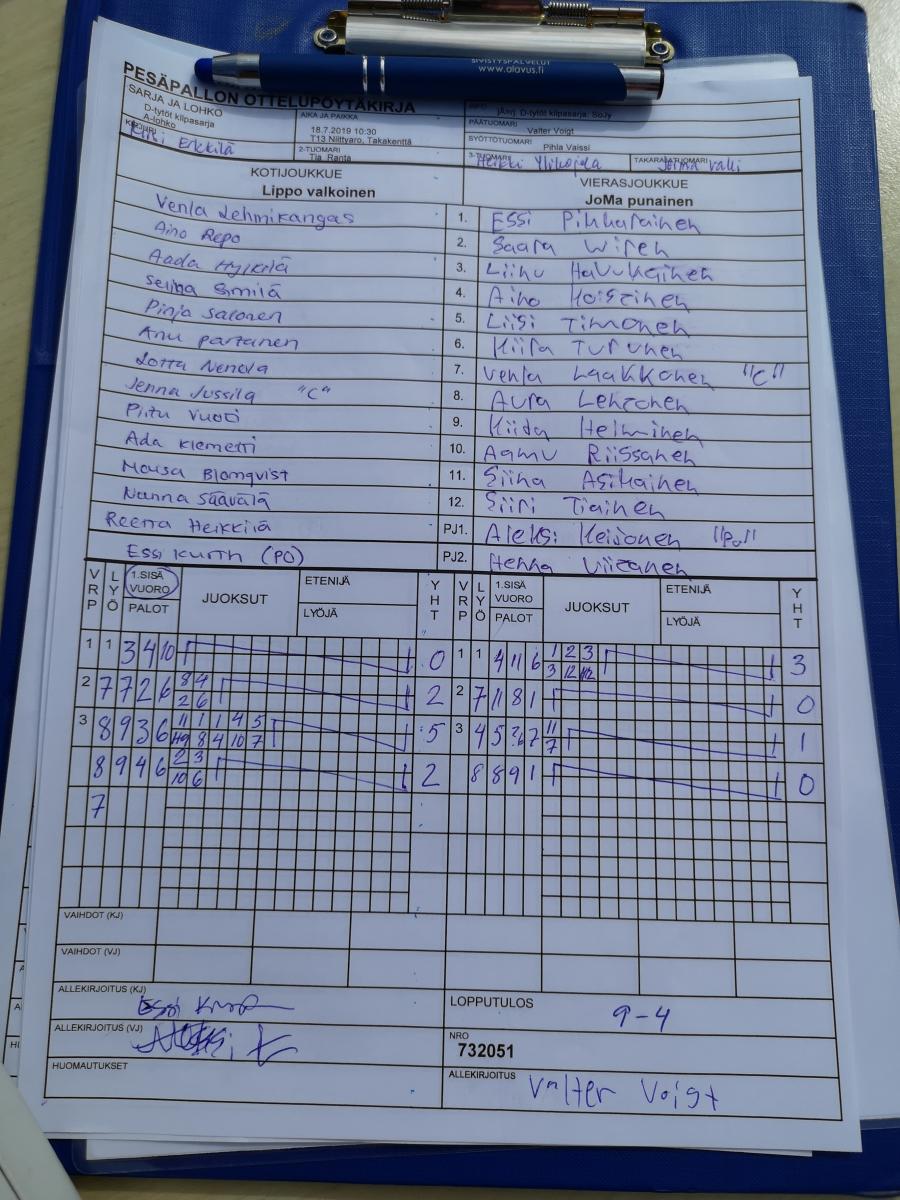 SIVISTYSPALVELUT
www.alavus.fi
PESÄPALLON OTTELUPÖYTÄKIRJA
SARJA JA LOHKO
D-tytöt kilpasarja
A-lohko
Erkkilä
AIKA JA PAIKKA
18.7.2019 10:30
T13 Niittyaro, Takakenttä
2-TUOMARI
Tia Ranta
D-tytöt kilpasarja: SoJy
PÄÄTUOMARI
Valter Voigt
SYÖTTÖTUOMARI
Pihla Vaissi
3-TUOMARI
Heikki
TAKARAJATUOMARI
KOTIJOUKKUE
Lippo valkoinen
VIERASJOUKKUE
JoMa punainen
Venla Lehmikangas 1. Essi Pikkarainen
Aino Repo 2. Saara Wiren
Aada Hyikilä 3. Liinu Havukainen
Selina Similä 4. Aino Moistinen
Pinja Salonen 5. Liisi Timonen
Anu Partanen 6. Kiira Turunen
Lotta Nenola 7. Venla Laakkonen "C"
Jenna Jussila "C" 8. Aura Lehtonen
Piitu Vuoti 9. Kiida Helminen
Ada Klemetti 10. Aamu Riissanen
Mousa Blomqvist 11. Siina Asikainen
Nanna Säävälä 12. Siiri Tiainen
Reetta Heikkilä PJ1. Aleksi Keijonen "Po"
Essi Kurth (PO) PJ2. Henna Viitanen
VRP LYÖ 1.SISÄ VUORO PALOT JUOKSUT ETENIJÄ LYÖJÄ YHT VRP LYÖ 1.SISÄ VUORO PALOT JUOKSUT ETENIJÄ LYÖJÄ YHT
1 1 3 4 10 0 1 1 4 11 6 1 2 3 3
3 12 12
2 7 7 2 6 8 4 2 2 7 11 8 1 0
2 6
3 8 9 3 6 11 1 1 4 5 5 3 4 5 7 11 1
8 4 10 7 7
8 9 4 6 2 3 2 8 8 9 1 0
10 6
7
VAIHDOT (KJ)
VAIHDOT (VJ)
ALLEKIRJOITUS (KJ) Essi
ALLEKIRJOITUS (VJ)
HUOMAUTUKSET
LOPPUTULOS 9-4
NRO
732051
ALLEKIRJOITUS Valter Voigt